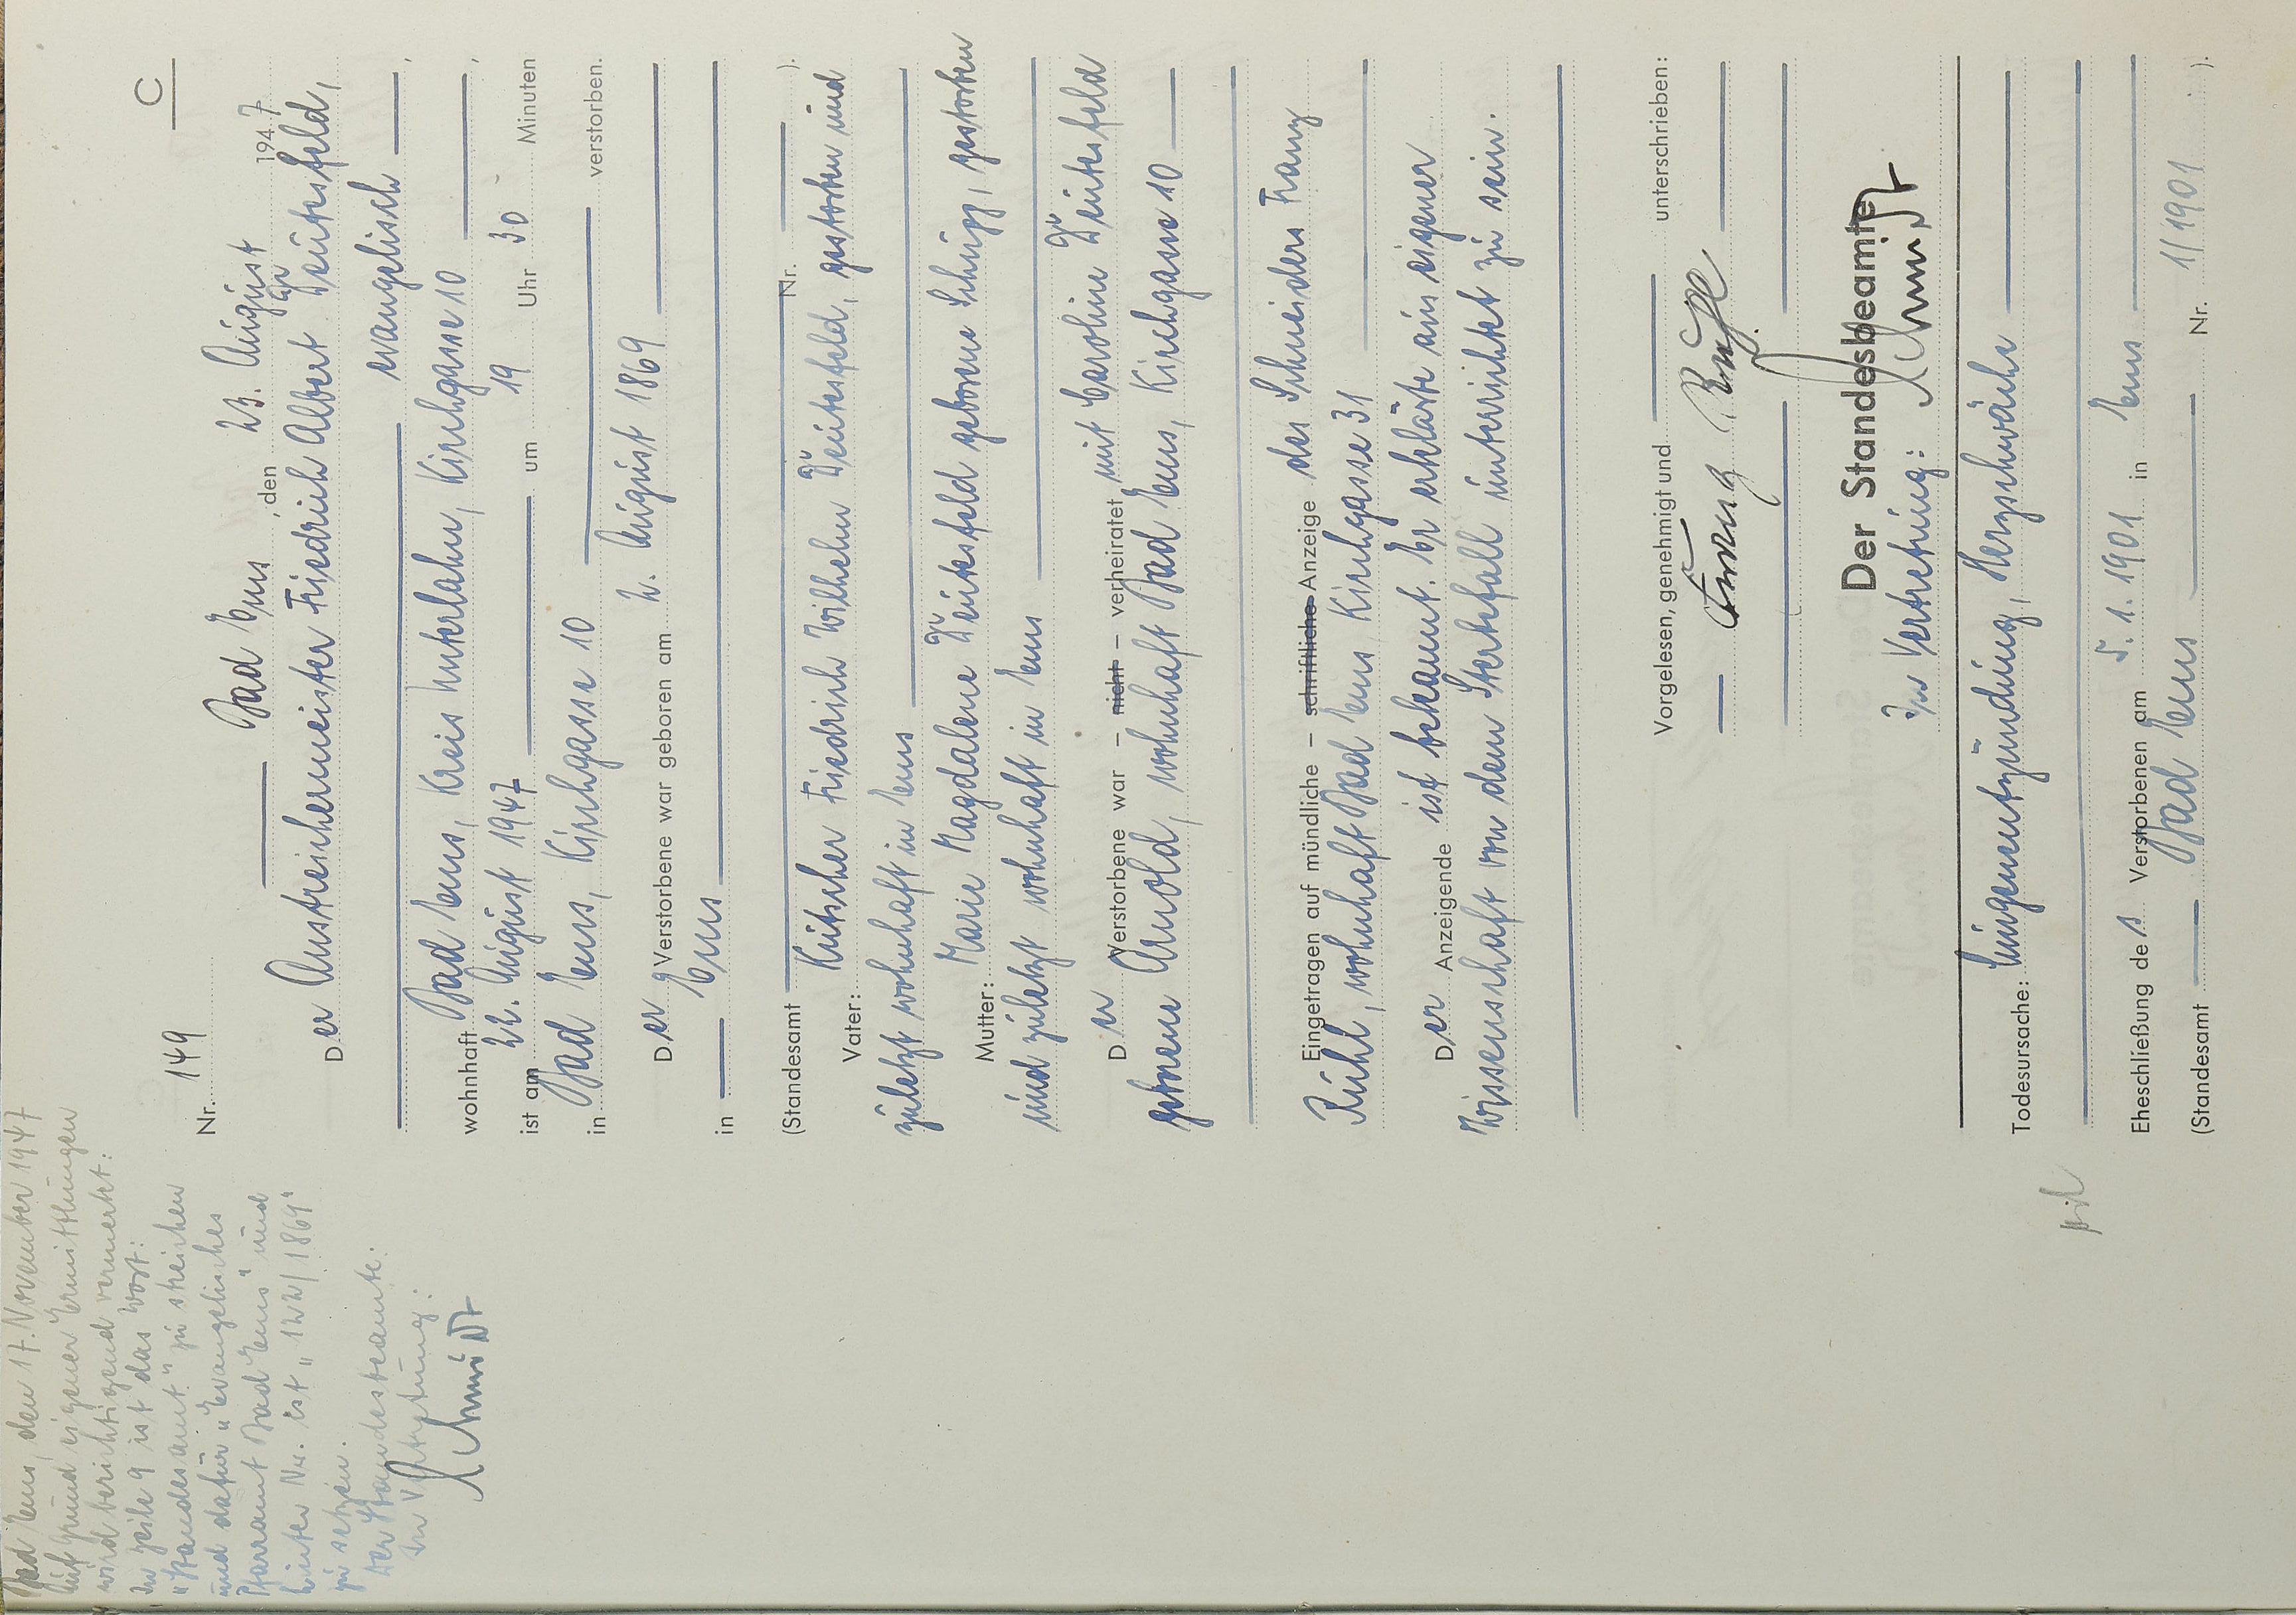 C
Nr. 149
Bad Ems, den 23. August 1947
Der Anstreichermeister Friedrich Albert Deutesfeld,
evangelisch,
wohnhaft Bad Ems, Kreis Unterlahn, Kirchgasse 10,
ist am 22. August 1947 um 19 Uhr 30 Minuten
in Bad Ems, Kirchgasse 10 verstorben.
Der Verstorbene war geboren am 2. August 1869
in Ems
(Standesamt Nr. ).
Vater: Kutscher Friedrich Wilhelm Deutesfeld, gestorben und
zuletzt wohnhaft in Ems
Mutter: Marie Magdalene Deutesfeld geborene Schupp, gestorben
und zuletzt wohnhaft in Ems
Der Verstorbene war – nicht – verheiratet mit Caroline Deutesfeld
geborene Arnold, wohnhaft Bad Ems, Kirchgasse 10
Eingetragen auf mündliche – schriftliche Anzeige des Schneiders Franz
Rühl, wohnhaft Bad Ems Kirchgasse 31
Der Anzeigende ist bekannt. Er erklärte aus eigener
Wissenschaft von dem Sterbefall unterrichtet zu sein.
Vorgelesen, genehmigt und unterschrieben:
Franz Rühl
Der Standesbeamte
In Vertretung: Schmidt
Todesursache: Lungenentzündung, Herzschwäche
Eheschließung des Verstorbenen am 5.1.1901 in Ems
(Standesamt Bad Ems Nr. 1/1901 ).
Bad Ems, den 17. November 1947
Auf Grund eigener Ermittlungen
wird berichtigend vermerkt:
In Zeile 9 ist das Wort:
"Standesamt" zu streichen
und dafür "Evangelisches
Pfarramt Bad Ems" und
hinter Nr. ist "122/1869"
zu setzen.
Der Standesbeamte:
In Vertretung:
Schmidt